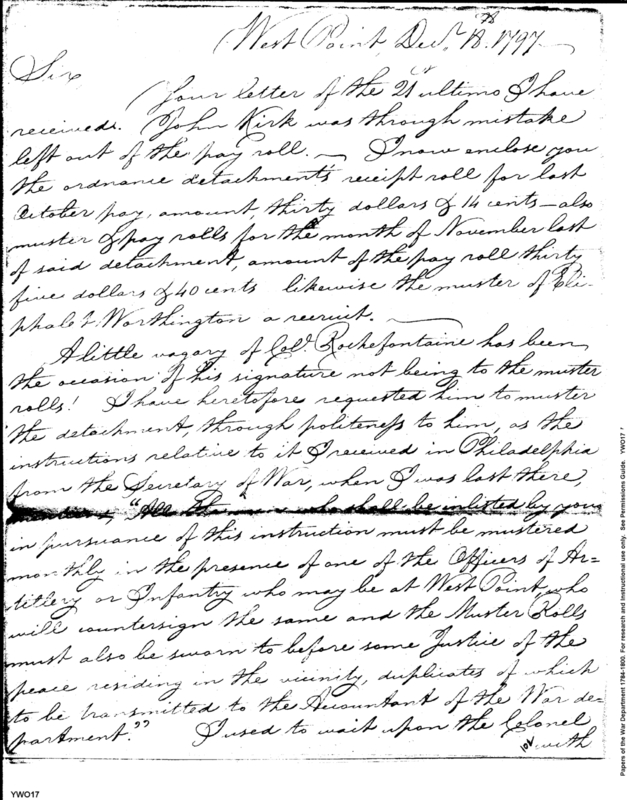 West Point, Decr. 18. 1797
Sir
Your letter of the 21st ultimo I have
received. John Kirk was through mistake
left out of the pay roll. — I now enclose you
the ordnance detachment's receipt roll for last
October pay, amount, thirty dollars & 14 cents — also
muster & pay rolls for the month of November last
of said detachment, amount of the pay roll thirty
five dollars & 40 cents likewise the muster of Eli-
phalet Worthington a recruit. —
A little vagary of Col. Rochefontaine has been
the occasion of his signature not being to the muster
rolls! I have heretofore requested him to muster
the detachment, through politeness to him, as the
instructions relative to it I received in Philadelphia
from the Secretary of War, when I was last there,
"All the men who shall be inlisted by you
in pursuance of this instruction must be mustered
monthly in the presence of one of the Officers of Ar-
tillery or Infantry who may be at West Point, who
will countersign the same and the Muster Rolls
must also be sworn to before some Justice of the
peace residing in the vicinity, duplicates of which
to be transmitted to the Accountant of the War de-
partment." I used to wait upon the Colonel
with
YWO17
Papers of the War Department 1784-1800. For research and instructional use only. See Permissions Guide. YWO17